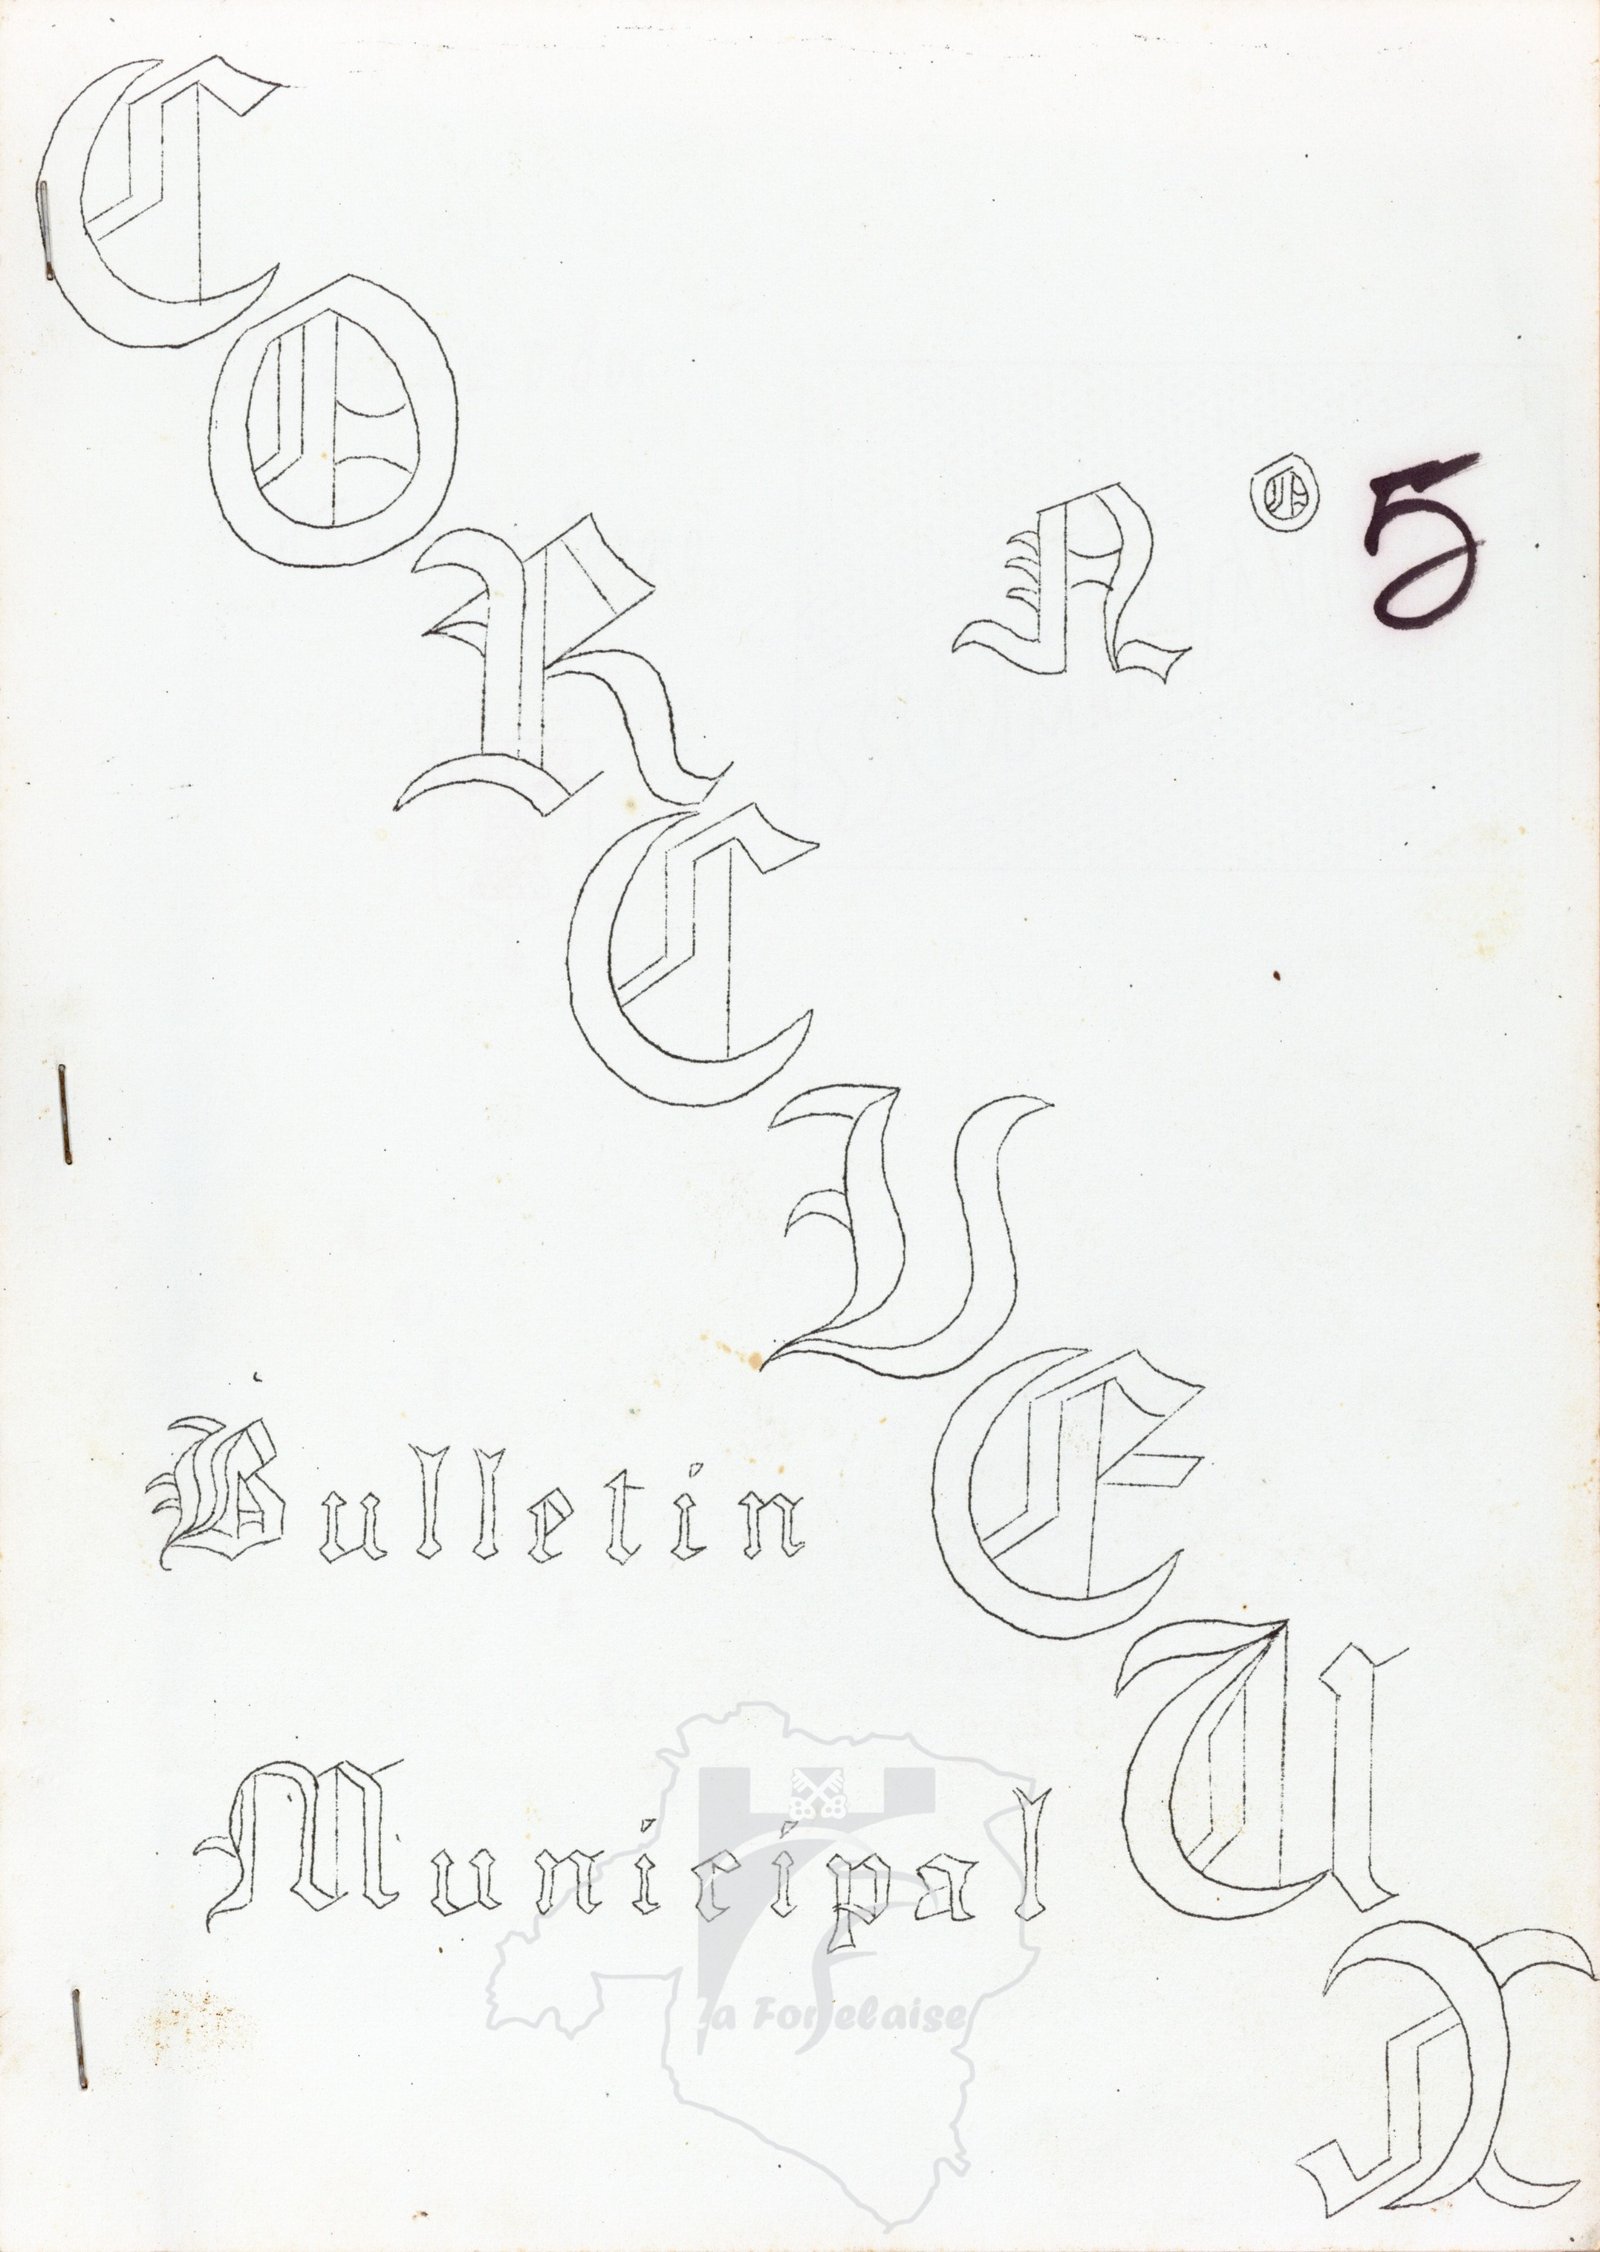 CORCUEUX
N° 5
Bulletin
Municipal
la Forgelaise